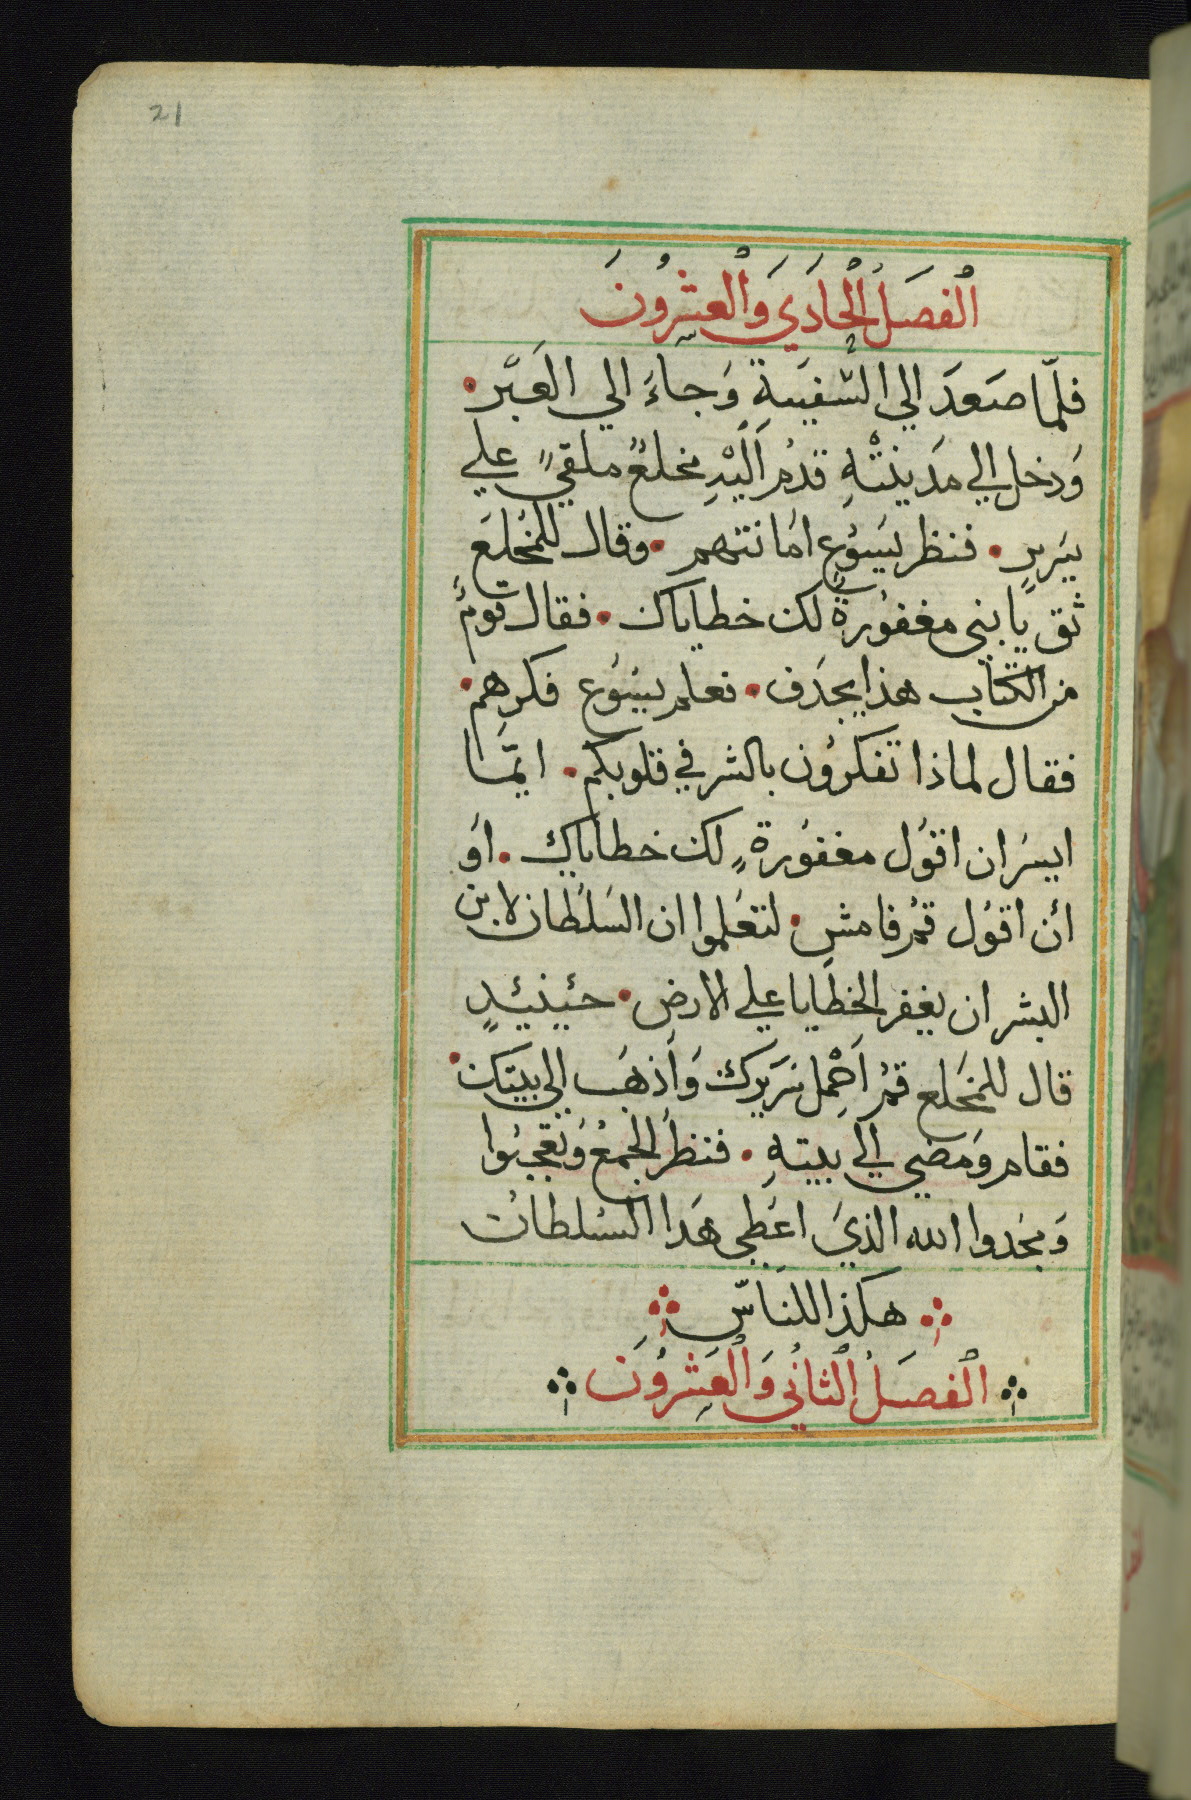 21
الفصل الحادي والعشرون
فلمّا صعد الي السّفينة وجاءَ الي العبر
ودخل الي مدينته قدم اليه مخلع ملقي علي
سرير فنظر يسوع امانتهم وقال للمخلع
ثق يا بني مغفورة لك خطاياك فقال قوم
من الكتاب هذا يجدف فعلم يسوع فكرهم
فقال لماذا تفكرون بالشر في قلوبكم ايّما
ايسر ان اقول مغفورة لك خطاياك او
أن اقول قم فامش لتعلموا ان السلطان لابن
البشر ان يغفر الخطايا علي الارض حئينئيد
قال للمخلع قم احمل سريرك واذهب الي بيتك
فقام ومضي الي بيته فنظر الجمع وتعجبوا
ومجدوا الله الذي اعطي هدا السلطان
هكذا للناسّ
الفصل الثاني والعشرون